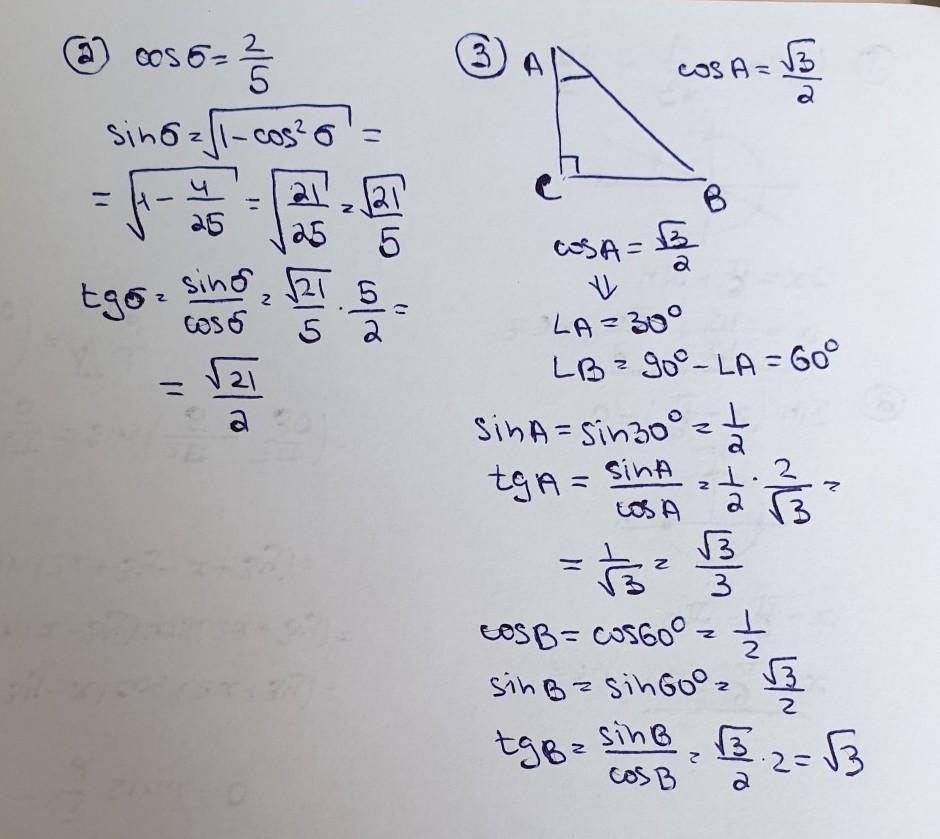 ② cos б = 2/5
sin б = √(1 - cos² б) =
= √(1 - 4/25) = √(21/25) = √21/5
tg б = sin б/cos б = √21/5 · 5/2 =
= √21/2
③ A C B cos A = √3/2
cos A = √3/2
⇓
∠A = 30°
∠B = 90° - ∠A = 60°
sin A = sin 30° = 1/2
tg A = sin A/cos A = 1/2 · 2/√3 =
= 1/√3 = √3/3
cos B = cos 60° = 1/2
sin B = sin 60° = √3/2
tg B = sin B/cos B = √3/2 · 2 = √3